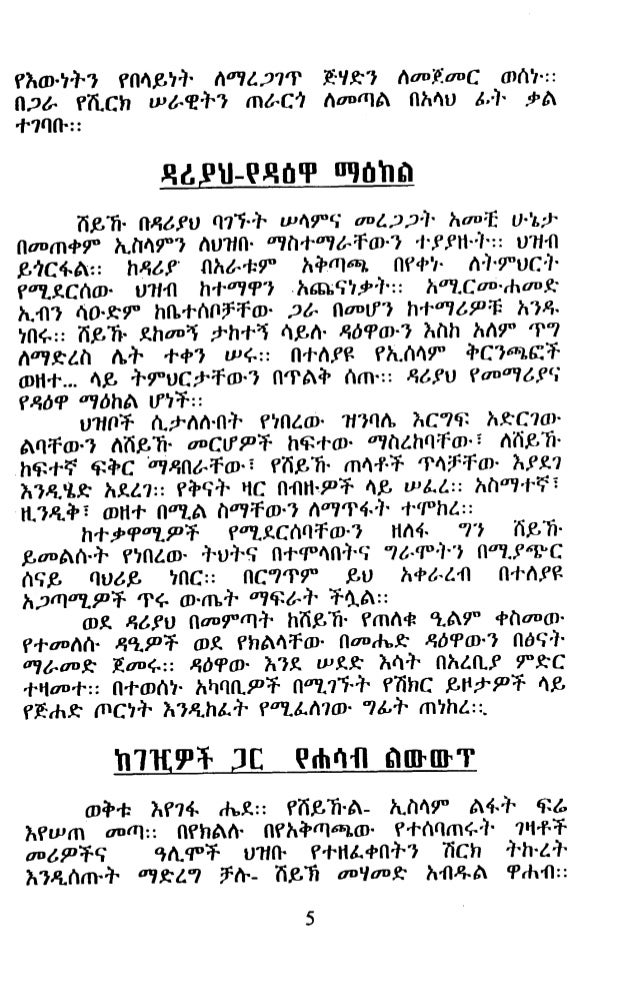 የእውነትን የበላይነት ለማረጋገጥ ጅሃድን ለመጀመር ወሰኑ።
በጋራ የሺርክ ሠራዊትን ጠራርጎ ለመጣል በአላህ ፊት ቃል
ተገባቡ።
ዳሪያህ-የዳዕዋ ማዕከል
ሸይኹ በዳሪያህ ባገኙት ሠላምና መረጋጋት አመቺ ሁኔታ
በመጠቀም ኢስላምን ለህዝቡ ማስተማራቸውን ተያያዙት። ህዝብ
ይጎርፋል። ከዳሪያ በአራቱም አቅጣጫ በየቀኑ ለትምህርት
የሚደርሰው ህዝብ ከተማዋን አጨናነቃት። አሚርሙሐመድ
ኢብን ሳዑድም ከቤተሰቦቻቸው ጋራ በመሆን ከተማሪዎቹ አንዱ
ነበሩ። ሸይኹ ደከመኝ ታከተኝ ሳይሉ ዳዕዋውን እስከ አለም ጥግ
ለማድረስ ሌት ተቀን ሠሩ። በተለያዩ የኢስላም ቅርንጫፎች
ወዘተ... ላይ ትምህርታቸውን በጥልቅ ሰጡ። ዳሪያህ የመማሪያና
የዳዕዋ ማዕከል ሆነች።
ህዝቦች ሲታለሉበት የነበረው ዝንባሌ እርግፍ አድርገው
ልባቸውን ለሸይኹ መርሆዎች ከፍተው ማስረከባቸው፣ ለሸይኹ
ከፍተኛ ፍቅር ማዳበራቸው፣ የሸይኹ ጠላቶች ጥላቻቸው እያደገ
እንዲሄድ አደረገ። የቅናት ዛር በብዙዎች ላይ ሠፈረ። አስማተኛ፣
ዚንዲቅ፣ ወዘተ በሚል ስማቸውን ለማጥፋት ተሞከረ።
ከተቃዋሚዎች የሚደርሰባቸውን ዘለፋ ግን ሸይኹ
ይመልሱት የነበረው ትህትና በተሞላበትና ግራሞትን በሚያጭር
ሰናይ ባህሪይ ነበር። በርግጥም ይህ አቀራረብ በተለያዩ
አጋጣሚዎች ጥሩ ውጤት ማፍራት ችሏል።
ወደ ዳሪያህ በመምጣት ከሸይኹ የጠለቁ ዒልም ቀስመው
የተመለሱ ዳዒዎች ወደ የክልላቸው በመሔድ ዳዕዋውን በፅናት
ማራመድ ጀመሩ። ዳዕዋው እንደ ሠደድ እሳት በአረቢያ ምድር
ተዛመተ። በተወሰኑ አካባቢዎች በሚገኙት የሽክር ይዞታዎች ላይ
የጅሐድ ጦርነት እንዲከፈት የሚፈለገው ግፊት ጠነከረ።
ከገዢዎች ጋር የሐሳብ ልውውጥ
ወቅቱ እየገፋ ሔደ። የሸይኹል- ኢስላም ልፋት ፍሬ
እየሠጠ መጣ። በየክልሉ በየአቅጣጫው የተሰባጠሩት ገዛቶች
መሪዎችና ዓሊሞች ህዝቡ የተዘፈቀበትን ሽርክ ትኩረት
እንዲሰጡት ማድረግ ቻሉ- ሸይኽ መሃመድ አብዱል ዋሐብ።
5